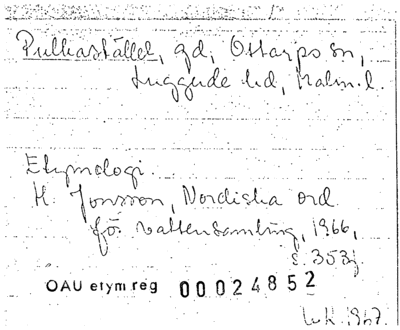 Pulkastället, gd, Ottarps sn,
Luggude hd, Malm. l.
Etymologi.
H. Jonsson, Nordiska ord
för vattensamling, 1966,
s. 353
OAU etym reg 00024852
1967.